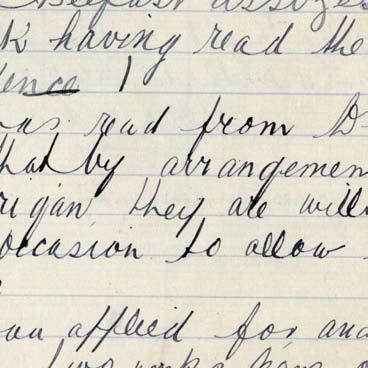 Belfast assizes
k having read the
ence
as read from D
that by arrangemen
rigan they are will
occasion to allow
on applied for and